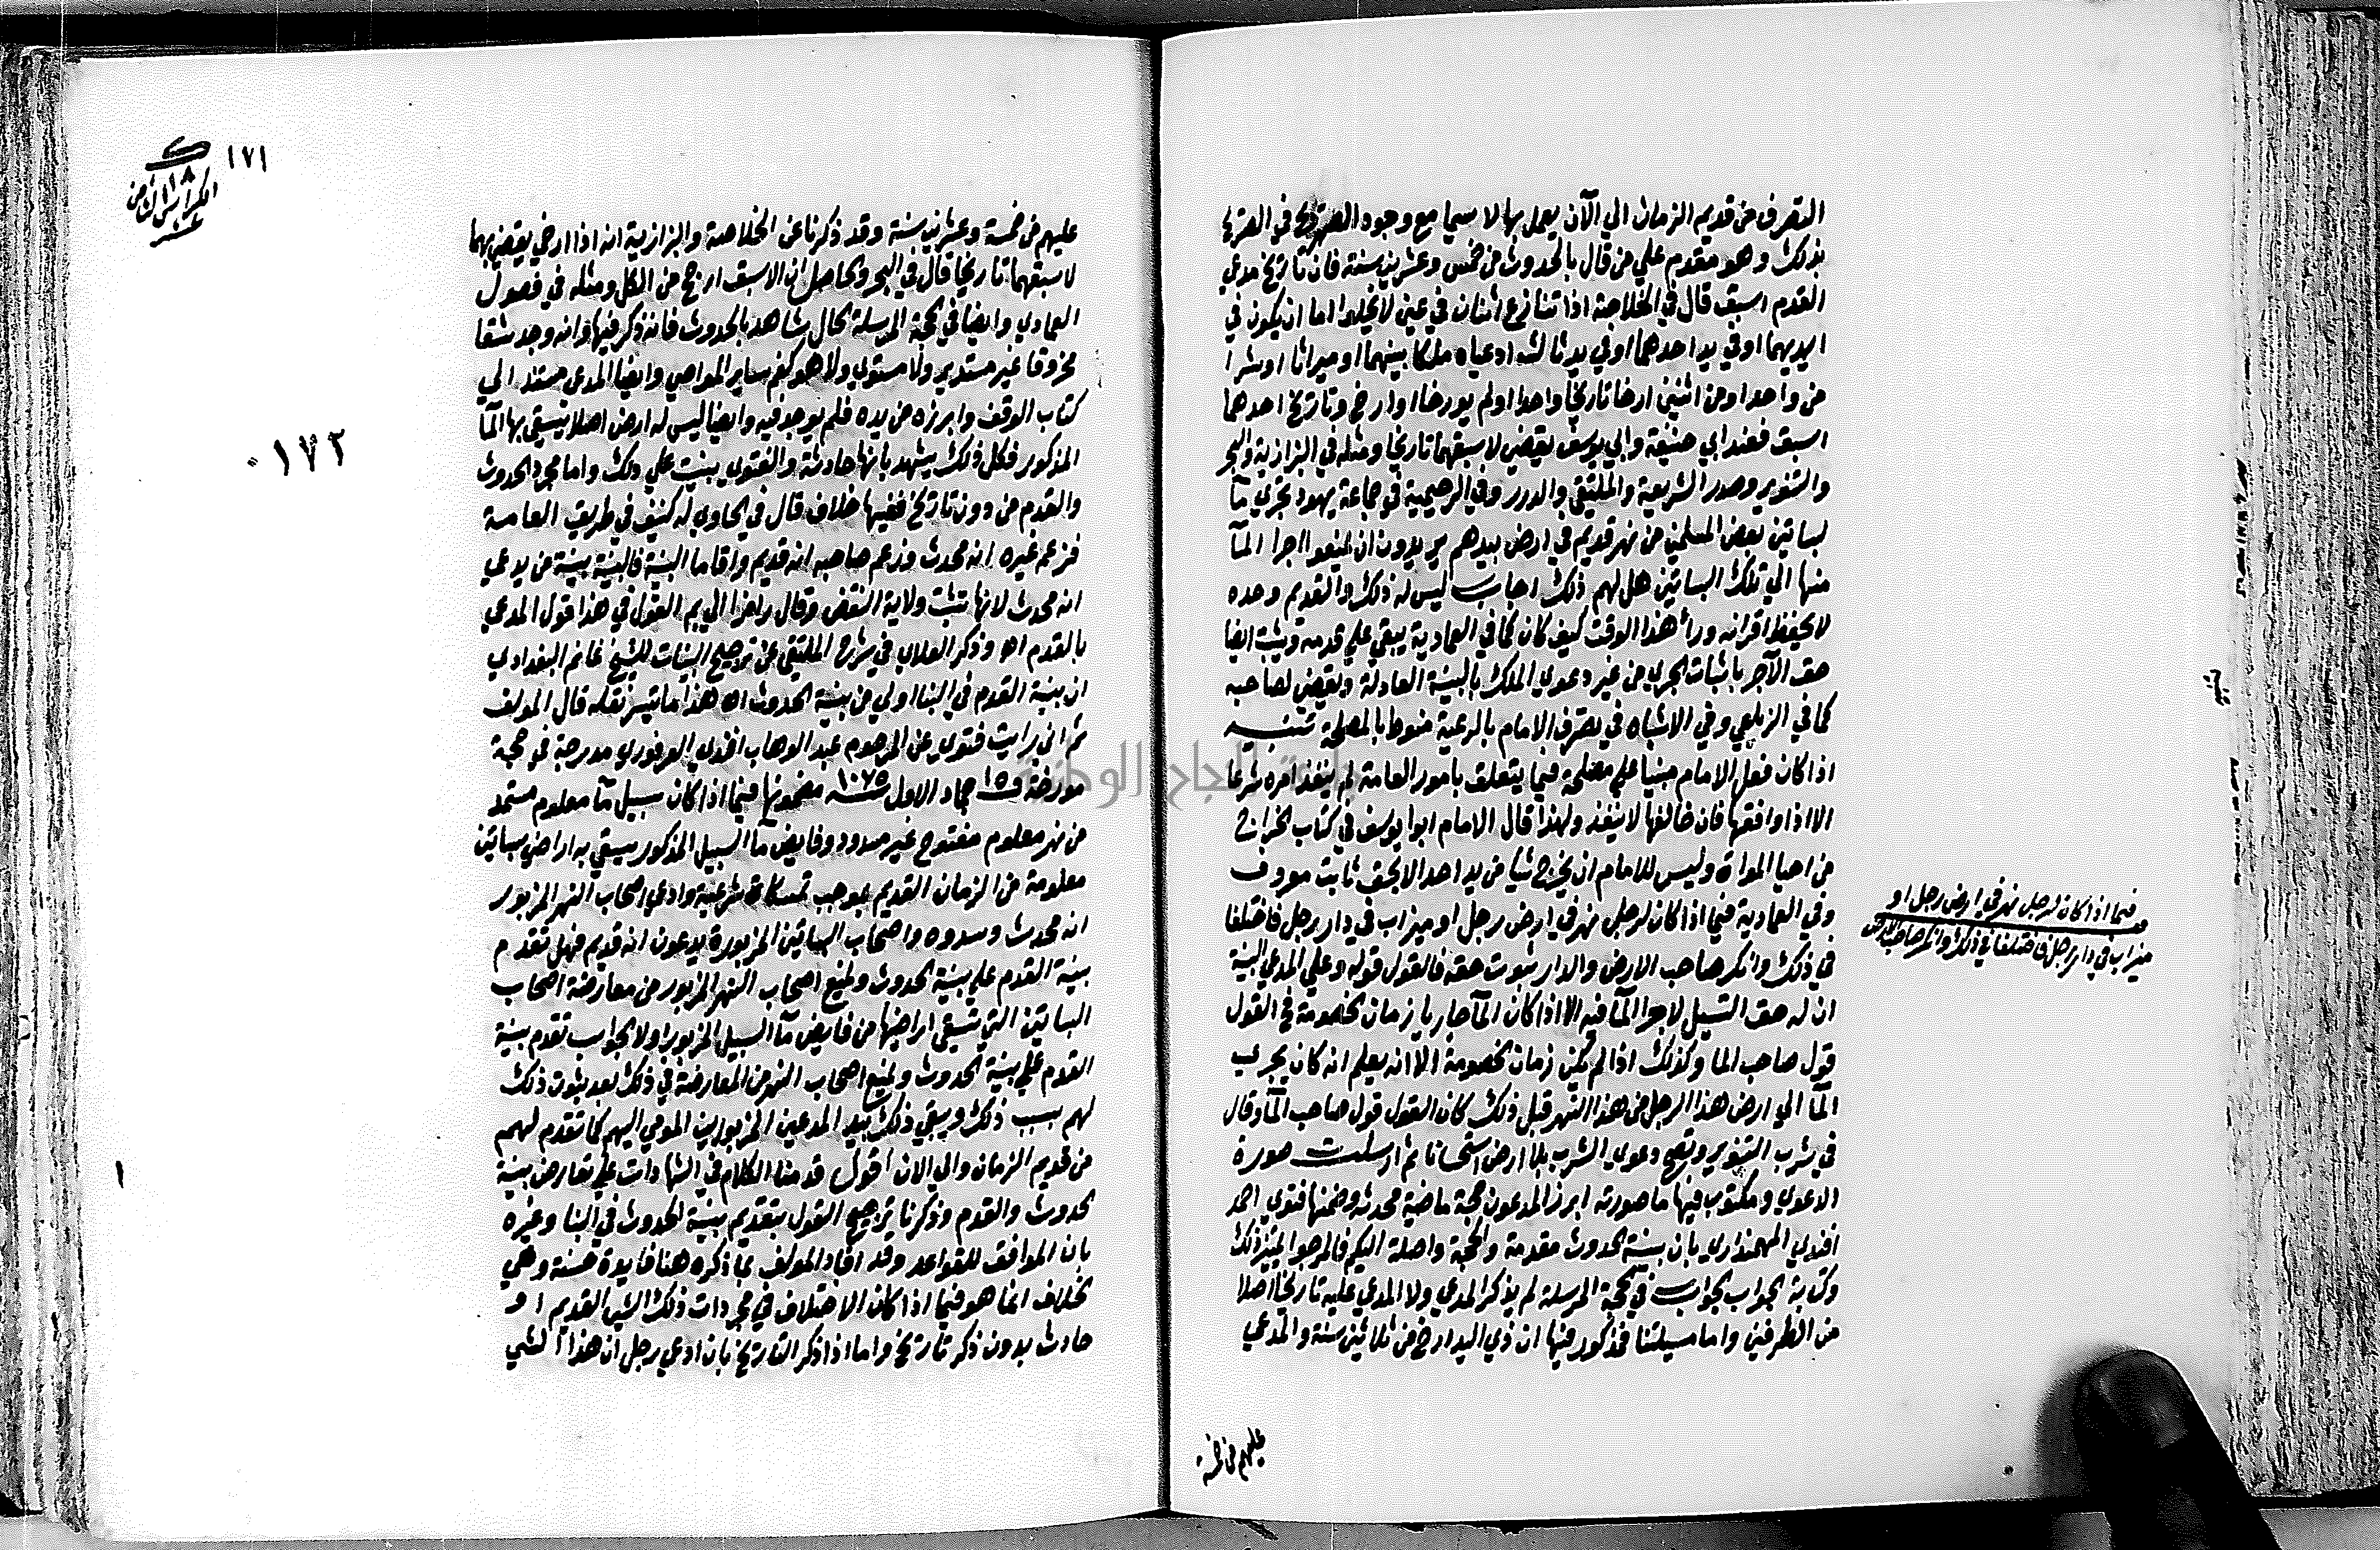 التصرف من قديم الزمان الي الآن يعمل بها لا سيما مع وجود التصريح في الصريح
بذلك وهو مقدم علي من قال بالحدوث من خمس وعشرين سنة فان تاريخ مدعي
القدم اسبق قال في الخلاصة اذا تنازع اثنان في عين لا يخلو اما ان يكون في
ايديهما او في يد احدهما او في يد ثالث ادعياه ملكا بينهما او ميراثا او شرا
من واحد او من اثنين ارخا تاريخا واحدا او لم يورخا او ارخ وتاريخ احدهما
اسبق فعند ابي حنيفة وابي يوسف يقضي لاسبقهما تاريخا ومثله في البزازية والبحر
والتنوير وصدر الشريعة والملتقي والدرر وفي الرحيمية في جماعة يهود يجري مآ
لبساتين بعض المسلمين من نهر قديم في ارض بيدهم يريدون ان يمنعوا اجرا المآ
منها الي تلك البساتين هل لهم ذلك اجاب ليس له ذلك والقديم وحده
لا يحفظ اقرانه ورأ هذا الوقت كيف كان كما في العمادية يبقي علي قدمه ويثبت ايضا
حق الآجر باثبات المجري من غير دعوي الملك بالبينة العادلة ويقضي لصاحبه
كما في الزيلعي وفي الاشباه في تصرف الامام بالرعية منوط بالمصلحة تنبيه
اذا كان فعل الامام مبنيا علي مصلحة فيما يتعلق بامور العامة لم ينفذ امره شرعا
الا اذا وافقها فان خالفها لا ينفذ ولهذا قال الامام ابو يوسف في كتاب الخراج
من احيا الموات وليس للامام ان يخرج شيا من يد احد الا بحق ثابت معروف
وفي العمادية فيما اذا كان لرجل نهر في ارض رجل او ميزاب في دار رجل فاختلفا
في ذلك وانكر صاحب الارض والدار ثبوت حقه فالقول قوله وعلي المدعي البينة
ان له حق التسييل لاجرا المآ فيه الا اذا كان المآ جاريا زمان الخصومة فح القول
قول صاحب الما وكذلك اذا لم يكن زمان الخصومة الا انه يعلم انه كان يجري
المآ الي ارض هذا الرجل من هذا النهر قبل ذلك كان القول قول صاحب المآ وقال
في شرب التنوير وتصح دعوي الشرب بلا ارض استحسانا ثم ارسلت صورة
الدعوي ومكتوب فيها ما صورته ابرز المدعون حجة ماضية محدثة وضمنها فتوي احمد
افندي المهمنداري بان بينة الحدوث مقدمة والحجة واصلة اليكم فالمرجو تمييز ذلك
وكتابة الجواب الجواب في الحجة المرسلة لم يذكر المدعي ولا المدعي عليه تاريخا اصلا
من الطرفين واما مسيلتنا فمذكور فيها ان ذي اليد ارخ من ثلاثين سنة والمدعي
فيما اذا كان لرجل نهر في ارض رجل او
ميزاب في دار رجل فاختلفا في ذلك وانكر صاحب الارض
عليهم من خمسة
١٧١
١٨
الكراس الثامن
عشر
١٧٢
عليهم من خمسة وعشرين سنة وقد ذكرنا عن الخلاصة والبزازية انه اذا ارخ يقضي بهما
لاسبقهما تاريخا قال في البحر والحاصل ان الاسبق ارجح من الكل ومثله في فصول
العمادي وايضا في الحجة المرسلة الحال شاهد بالحدوث فانه ذكر فيها وانه وجد شقا
مخروقا غير مستدير ولا مستوي ولا هو كفم ساير المواصي وايضا المدعي مستند الي
كتاب الوقف وابرزه من يده فلم يوجد فيه وايضا ليس له ارض اصلا يسقي بها المآ
المذكور فكل ذلك يشهد بانها حادثة والفتوي بنيت علي ذلك واما مجرد الحدوث
والقدم من دون تاريخ ففيها خلاف قال في الحاوي له كنيف في طريق العامة
فزعم غيره انه محدث وزعم صاحبه انه قديم واقاما البينة فالبينة بينة من يدعي
انه محدث لانها تثبت ولاية النقض وقال رامزا الي بم القول في هذا قول المدعي
بالقدم اه وذكر العلاي في شرح الملتقي عن ترجيح البينات للشيخ غانم البغدادي
ان بينة القدم في البنا اولي من بينة الحدوث اه هذا ما تيسر نقله قال المولف
ثم اني رايت فتوي عن المرحوم عبد الوهاب افندي الفرفوري مدرجة في حجة
مورخة في ١٥ جماد الاول سنة ١٠٧٥ مضمونها فيما اذا كان سبيل مآ معلوم مستمد
من نهر معلوم مفتوح غير مسدود وفايض مآ السبيل المذكور يسقي به اراضي بساتين
معلومة من الزمان القديم بموجب تمسكات شرعية وادعي اصحاب النهر المزبور
انه محدث وسدوه واصحاب البساتين المزبورة يدعون انه قديم فهل تقدم
بينة القدم علي بينة الحدوث ويمنع اصحاب النهر المزبور من معارضة اصحاب
البساتين التي تسقي اراضيها من فايض مآ السبيل المزبور اولا الجواب تقدم بينة
القدم علي بينة الحدوث ويمنع اصحاب النهر من المعارضة في ذلك بعد ثبوت ذلك
لهم بسبب ذلك ويبقي ذلك بيد المدعين المزبورين المومي اليهم كما تقدم لهم
من قديم الزمان والي الان اقول قدمنا الكلام في الشهادات علي تعارض بينة
الحدوث والقدم وذكرنا ترجيح القول بتقديم بينة الحدوث في البنا وغيره
بان الموافق للقواعد وقد افاد المولف بما ذكره هنا فايدة حسنة وهي
الخلاف انما هو فيما اذا كان الاختلاف في مجردات ذلك الشي القديم او
حادث بدون ذكر تاريخ واما اذا ذكر التاريخ بان ادعي رجل ان هذا الشي